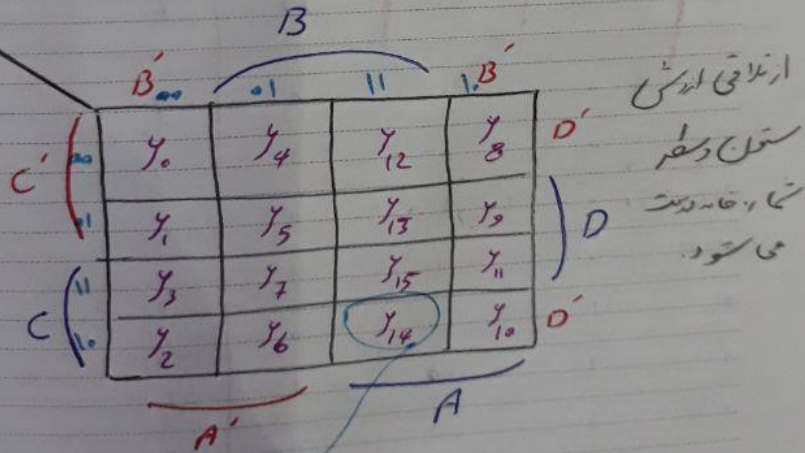 B
B′ ۰۰ ۰۱ ۱۱ ۱۰ B′
C′ ۰۰ y₀ y₄ y₁₂ y₈ D′
۰۱ y₁ y₅ y₁₃ y₉ D
C ۱۱ y₃ y₇ y₁₅ y₁₁
۱۰ y₂ y₆ y₁₄ y₁₀ D′
A′ A
از تلاقی ارزش
ستون و سطر
شماره خانه درست
می شود.